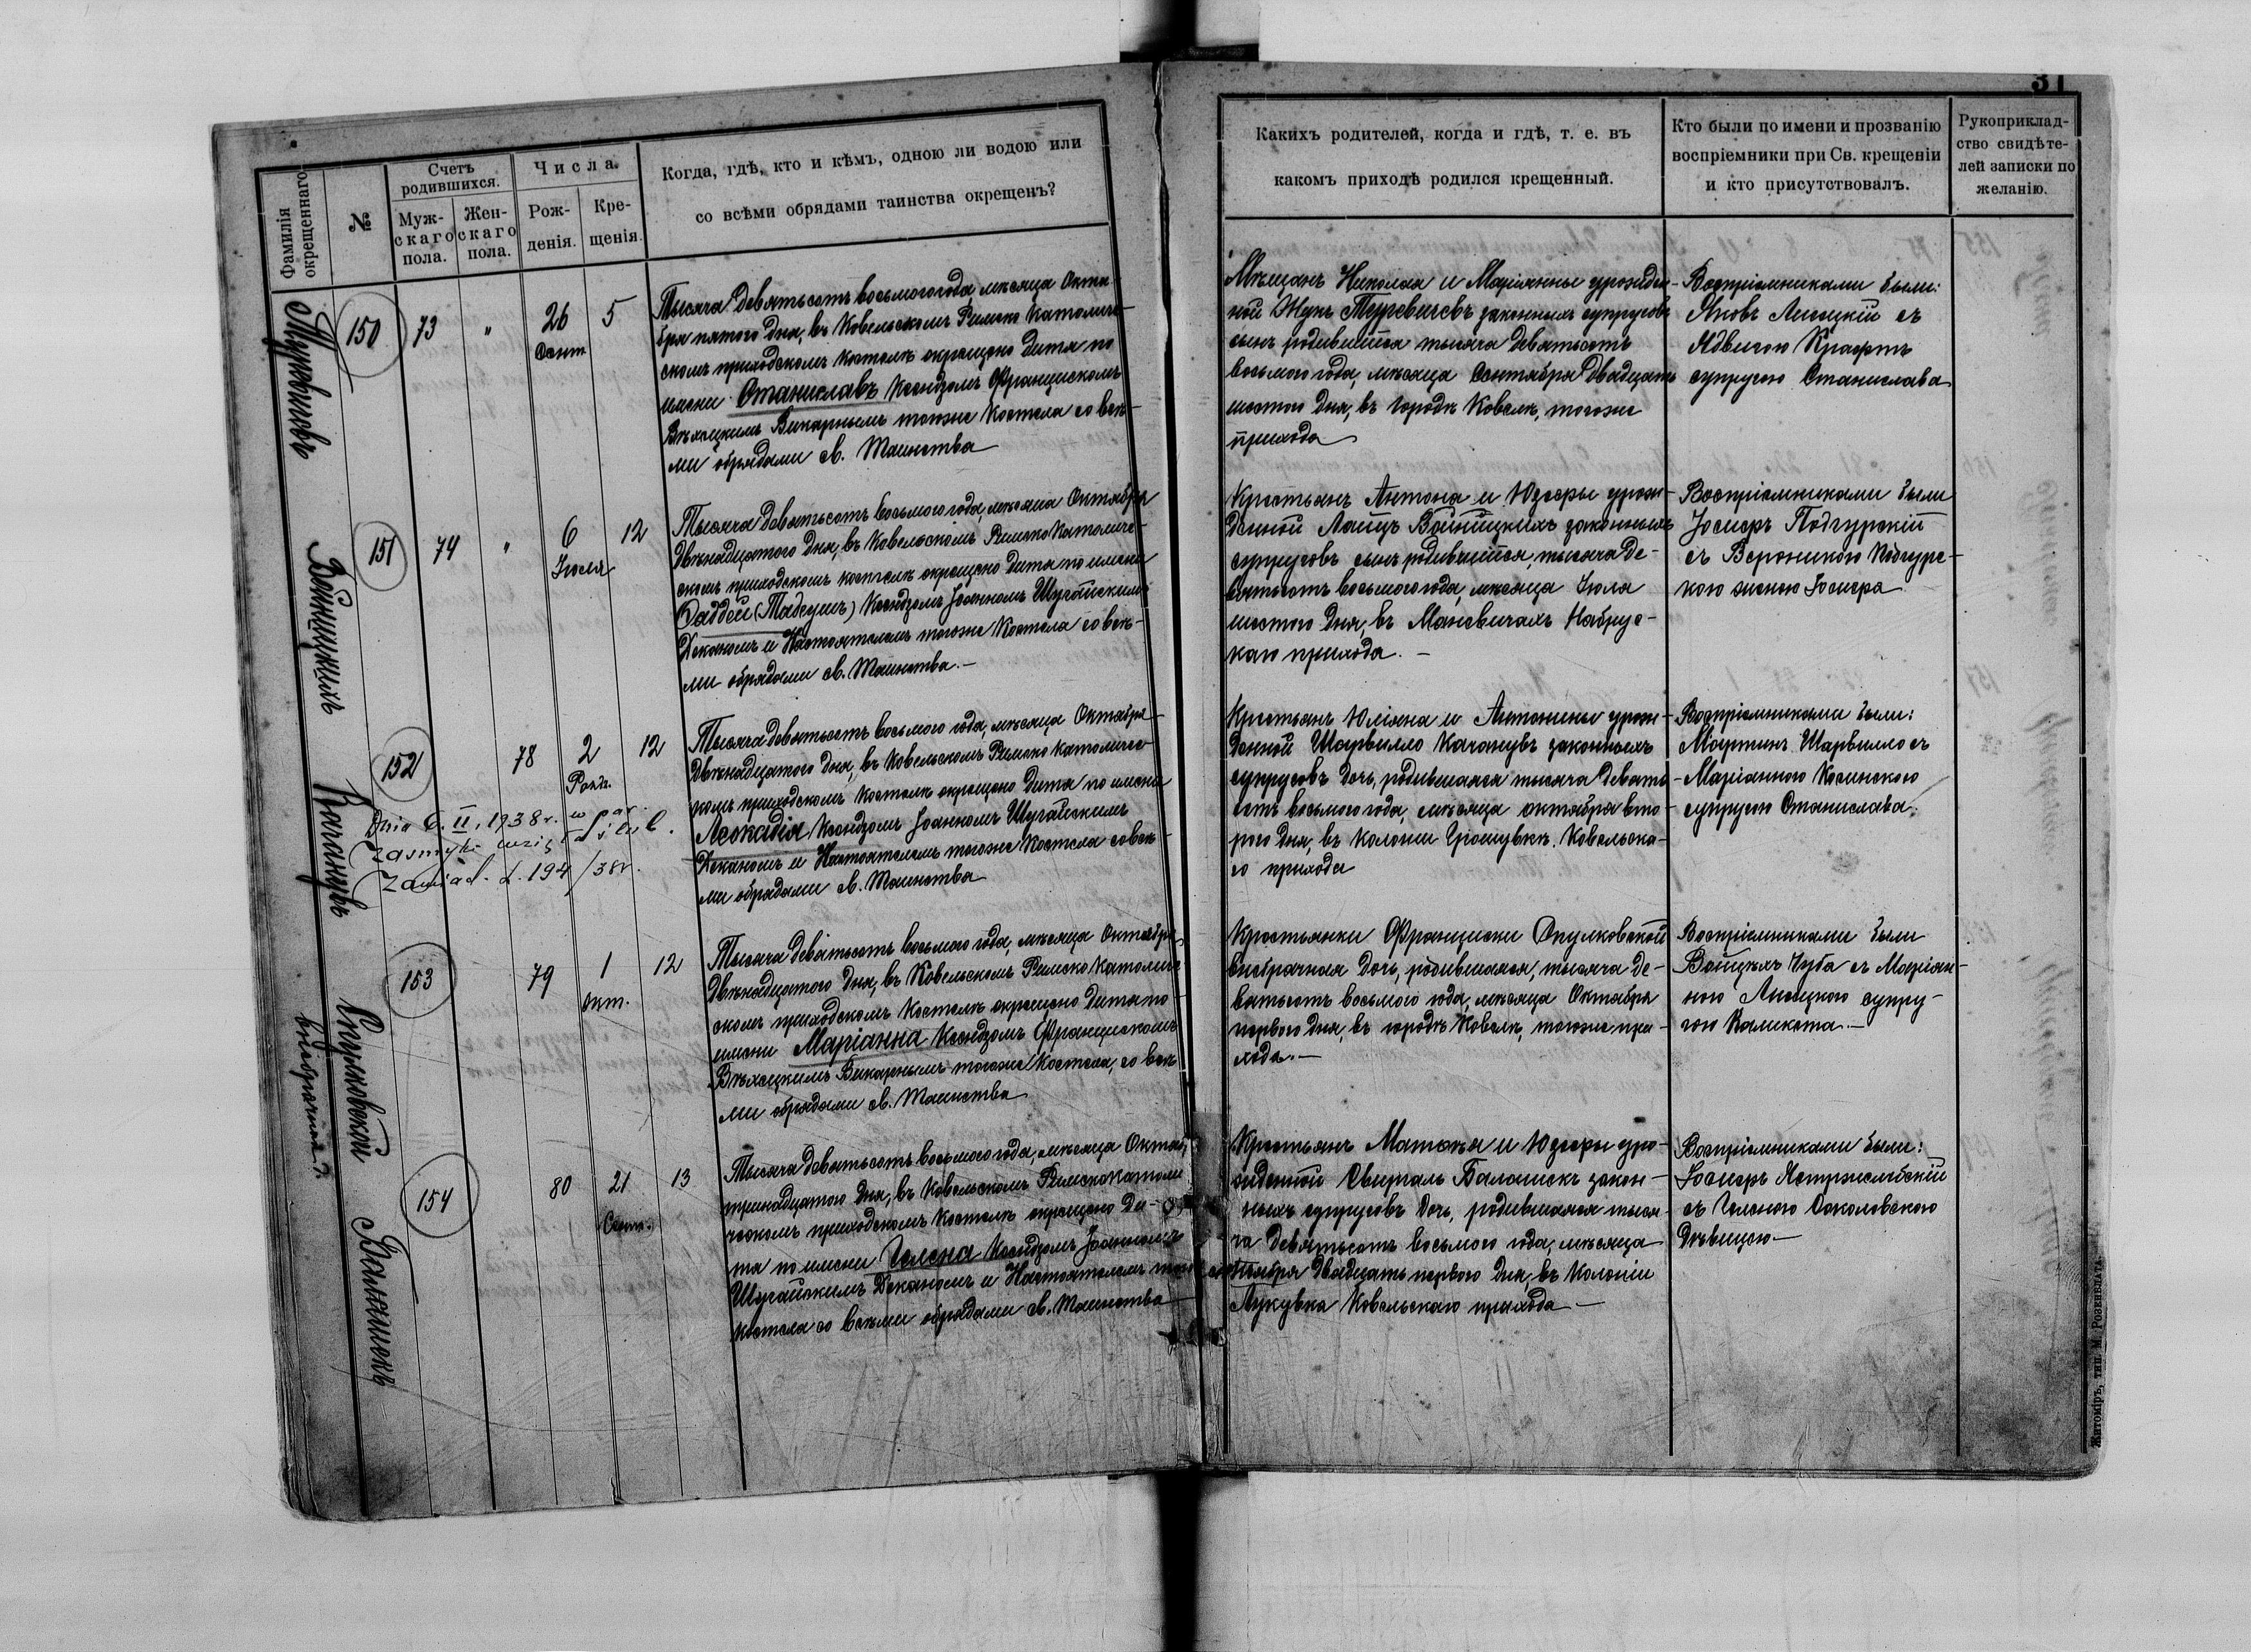 Фамилія окрещеннаго.
№
Счетъ родившихся.
Мужскаго пола.
Женскаго пола.
Числа.
Рожденія.
Крещенія.
Когда, гдѣ, кто и кѣмъ, одною ли водою или
со всѣми обрядами таинства окрещенъ?
150
73
"
26
Сент.
5
Тысяча девятьсотъ восьмого года, мѣсяца Октя-
бря пятого дня, въ Ковельскомъ Римско Католиче-
скомъ приходскомъ костелѣ окрещено дитя по
имени Станиславъ Ксендзомъ Францискомъ
Викарнымъ тогоже Костела со всѣ-
ми обрядами св. Таинства
151
74
"
6
Іюля
12
Тысяча девятьсотъ восьмого года, мѣсяца Октября
двѣнадцатого дня, въ Ковельскомъ Римско Католиче-
скомъ приходскомъ костелѣ окрещено дитя по имени
Фаддей (Тадеушъ) Ксендзомъ Іоанномъ Шугайскимъ
Деканомъ и Настоятелемъ тогоже Костела со всѣ-
ми обрядами св. Таинства.-
Качануръ
152
78
2
12
Dnia 6.II.1938 r. w par.
Zasmyki wziął ślub.
Zawiad. L. 194/38 r.
Тысяча девятьсотъ восьмого года, мѣсяца Октября
двѣнадцатого дня, въ Ковельскомъ Римско Католиче-
скомъ приходскомъ костелѣ окрещено дитя по имени
Леокадія Ксендзомъ Іоанномъ Шугайскимъ
Деканомъ и Настоятелемъ тогоже Костела со всѣ-
ми обрядами св. Таинства
внебрачная
153
79
1
Окт.
12
Тысяча девятьсотъ восьмого года, мѣсяца Октября
двѣнадцатого дня, въ Ковельскомъ Римско Католиче-
скомъ приходскомъ Костелѣ окрещено дитя по
имени Маріанна Ксендзомъ Францискомъ
Викарнымъ тогоже Костела, со всѣ-
ми обрядами св. Таинства
154
80
21
Сент.
13
Тысяча девятьсотъ восьмого года, мѣсяца Октяб.
тринадцатого дня, въ Ковельскомъ Римско Католи-
ческомъ приходскомъ Костелѣ окрещено ди-
тя по имени Гелена Ксендзомъ Іоанномъ
Шугайскимъ Деканомъ и Настоятелемъ тогоже
костела со всѣми обрядами св. Таинства
31
Какихъ родителей, когда и гдѣ, т. е. въ
какомъ приходѣ родился крещенный.
Кто были по имени и прозванію
воспріемники при Св. крещеніи
и кто присутствовалъ.
Рукоприклад-
ство свидѣте-
лей записки по
желанію.
Мѣщанъ Николая и Маріанны урожден-
ной Жукъ законныхъ супруговъ
сынъ родившійся тысяча девятьсотъ
восьмого года, мѣсяца Сентября двадцать
шестого дня, въ городѣ Ковелѣ, тогоже
прихода
Воспріемниками были:
Яковъ Лисецкій съ
Ядвигою Крафтъ
супругою Станислава
Крестьянъ Антона и Юзефы урож-
денной законныхъ
супруговъ сынъ родившійся, тысяча де-
вятьсотъ восьмого года, мѣсяца Іюля
шестого дня, въ Маневичахъ Набрус-
каго прихода. -
Воспріемниками были
Іосифъ Подгурскій
съ Вероникою Подгурс-
кою женою Іосифа
Крестьянъ Юліяна и Антонины урож-
денной Шарвилло Качануръ законныхъ
супруговъ дочь, родившаяся тысяча девять-
сотъ восьмого года, мѣсяца октября вто-
рого дня, въ колоніи Ковельска-
го прихода
Воспріемниками были:
Мартинъ Шарвилло съ
Маріанною Косинскою
супругою Станислава.
Крестьянки Франциски Опулковской
внебрачная дочь, родившаяся, тысяча де-
вятьсотъ восьмого года, мѣсяца Октября
первого дня, въ городѣ Ковелѣ, тогоже при-
хода.-
Воспріемниками были
Войцѣхъ съ Маріан-
ною Лисецкою супру-
гою Каликста.-
Крестьянъ Матвѣя и Юзефы уро-
жденной закон-
ныхъ супруговъ дочь, родившаяся тыся-
ча девятьсотъ восьмого года, мѣсяца
сентября двадцать первого дня, въ Колоніи
Лукувка Ковельскаго прихода -
Воспріемниками были:
Іосифъ Ястржембскій
съ Геленою Соколовскою
Дѣвицею-
Житоміръ, тип. М. Розенблата.